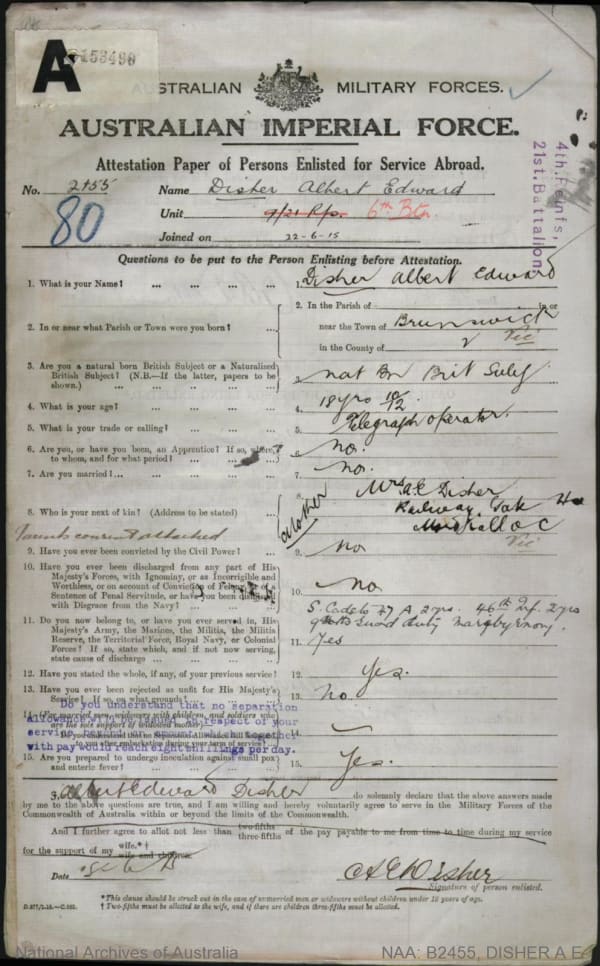 A
AUSTRALIAN MILITARY FORCES.
AUSTRALIAN IMPERIAL FORCE.
Attestation Paper of Persons Enlisted for Service Abroad.
No. 2155 Name Disher Albert Edward
80
Unit 9/21 Rfs. 6th Btn.
Joined on 22-6-15
21st. Battalion
Questions to be put to the Person Enlisting before Attestation.
1. What is your Name? ... ... ... 1. Disher Albert Edward
2. In or near what Parish or Town were you born? ... 2. In the Parish of in or
near the Town of Brunswick
in the County of Vic
3. Are you a natural born British Subject or a Naturalised
British Subject? (N.B.—If the latter, papers to be
shown.) 3. nat Bn Brit Subj
4. What is your age? 4. 18 yrs 10/12
5. What is your trade or calling? 5. Telegraph operator
6. Are you, or have you been, an Apprentice? If so, where,
to whom, and for what period? 6. no.
7. Are you married? 7. no.
8. Who is your next of kin? (Address to be stated) 8. mother Mrs. A.E. Disher
Railway
Vic
Parents consent attached
9. Have you ever been convicted by the Civil Power? 9. no
10. Have you ever been discharged from any part of His
Majesty's Forces, with Ignominy, or as Incorrigible and
Worthless, or on account of Conviction of Felony, or of a
Sentence of Penal Servitude, or have you been dismissed
with Disgrace from the Navy? 10. no
11. Do you now belong to, or have you ever served in, His
Majesty's Army, the Marines, the Militia, the Militia
Reserve, the Territorial Force, Royal Navy, or Colonial
Forces? If so, state which, and if not now serving,
state cause of discharge 11. S. Cadets 27 A 2 yrs. 46th Inf. 2 yrs
Guard duty
Yes
12. Have you stated the whole, if any, of your previous service? 12. Yes.
13. Have you ever been rejected as unfit for His Majesty's
Service? If so, on what grounds? 13. No.
Do you understand that no separation
allowance will be issued in respect of your
service beyond an amount which together
with pay would reach eight shillings per day.
14. (For married men, widowers with children, and soldiers who
are the sole support of widowed mother)—
to you after embarkation during your term of service? 14.
15. Are you prepared to undergo inoculation against small pox
and enteric fever? 15. Yes.
I, Albert Edward Disher do solemnly declare that the above answers made
by me to the above questions are true, and I am willing and hereby voluntarily agree to serve in the Military Forces of the
Commonwealth of Australia within or beyond the limits of the Commonwealth.
And I further agree to allot not less than two-fifths three-fifths of the pay payable to me from time to time during my service
for the support of my wife.*† wife and children.
Date
A E Disher
Signature of person enlisted.
*This clause should be struck out in the case of unmarried men or widowers without children under 18 years of age.
†Two-fifths must be allotted to the wife, and if there are children three-fifths must be allotted.
National Archives of Australia NAA: B2455, DISHER A E